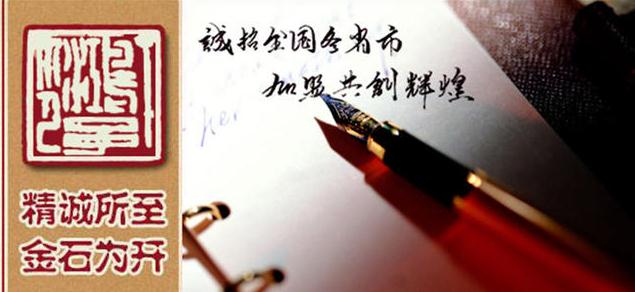 精诚所至
金石为开
誠招全国各省市
加盟共创辉煌